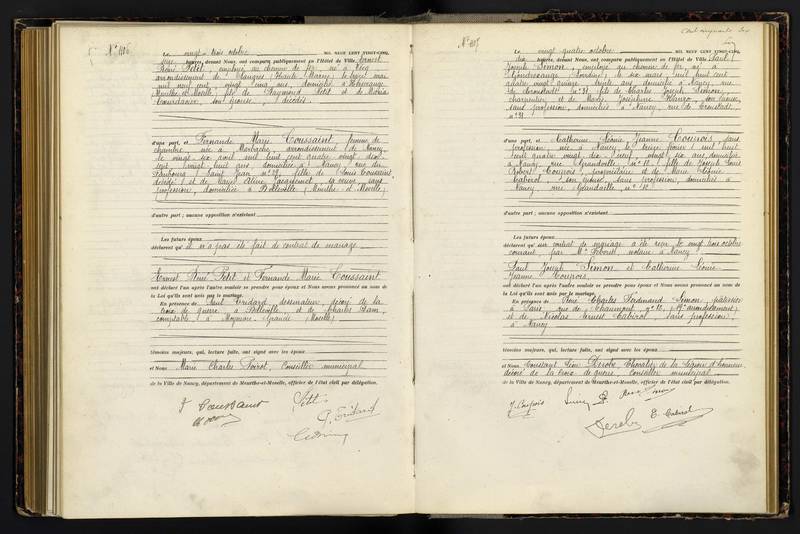 N° 1106
Le vingt trois octobre MIL NEUF CENT VINGT-CINQ,
heures, devant Nous, ont comparu publiquement en l'Hôtel de Ville Ernest
René Petit, employé au chemin de fer, né à
arrondissement de Langres (Haute Marne) le treize mai
mil neuf cent, vingt cinq ans, domicilié à
Meurthe et Moselle, fils de Raymond Petit et de
son épouse, décédés.
d'une part, et Fernande Marie Coussaint, femme de
chambre, née à Marbache, arrondissement de Nancy,
le vingt six avril mil huit cent quatre vingt dix
sept, vingt huit ans, domiciliée à Nancy rue du
Faubourg Saint Jean n° 38, fille de Louis Coussaint
décédé et de Marie Aline Jacquemot, sa veuve, sans
profession, domiciliée à Belleville (Meurthe et Moselle)
d'autre part ; aucune opposition n'existant
Les futurs époux
déclarent qu'il n'a pas été fait de contrat de mariage
Ernest René Petit et Fernande Marie Coussaint
ont déclaré l'un après l'autre vouloir se prendre pour époux et Nous avons prononcé au nom de
la Loi qu'ils sont unis par le mariage.
En présence de Paul Cridard, dessinateur, décoré de la
croix de guerre, à Belleville et de Charles
comptable, à Moyeuvre Grande (Moselle)
témoins majeurs, qui, lecture faite, ont signé avec les époux
et Nous Marie Charles Poirot, Conseiller municipal
de la Ville de Nancy, département de Meurthe-et-Moselle, officier de l'état civil par délégation.
F Coussaint
Petit
N° 1107
Le vingt quatre octobre MIL NEUF CENT VINGT-CINQ,
dix heures, devant Nous, ont comparu publiquement en l'Hôtel de Ville Paul
Joseph Simon, employé au chemin de fer, né à
Gondrexange (Moselle) le six mars mil huit cent
quatre vingt quinze, trente ans, domicilié à Nancy, rue
de Cronstadt n° 31, fils de Charles Joseph Simon,
charpentier, et de Marie Joséphine son épouse,
sans profession, domiciliés à Nancy, rue de Cronstadt
n° 31
d'une part, et Catherine Léonie Jeanne Courtois, sans
profession, née à Nancy le treize février mil huit
cent quatre vingt dix neuf, vingt six ans, domiciliée
à Nancy, rue Grandville, n° 12, fille de Joseph Louis
Robert Courtois, propriétaire et de Marie Léonie
Cabirol, son épouse, sans profession, domiciliés à
Nancy rue Grandville, n° 12
d'autre part ; aucune opposition n'existant
Les futurs époux
déclarent qu'un contrat de mariage a été reçu le vingt trois octobre
courant, par Me notaire à Nancy
Paul Joseph Simon et Catherine Léonie
Jeanne Courtois
ont déclaré l'un après l'autre vouloir se prendre pour époux et Nous avons prononcé au nom de
la Loi qu'ils sont unis par le mariage.
En présence de René Charles Ferdinand Simon, pâtissier
à Paris, rue de Chaumont, n° 12, (19e arrondissement)
et de Nicolas Ernest Cabirol, sans profession,
à Nancy
témoins majeurs, qui, lecture faite, ont signé avec les époux
et Nous Constant Léon Derobe, Chevalier de la Légion d'honneur,
décoré de la croix de guerre, conseiller municipal
de la Ville de Nancy, département de Meurthe-et-Moselle, officier de l'état civil par délégation.
J. Courtois
Simon P.
Derobe
E. Cabirol